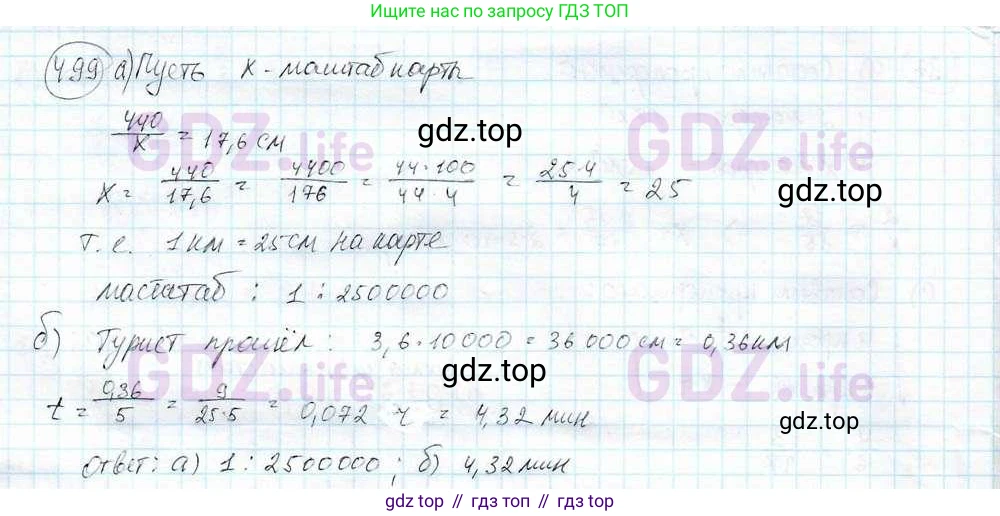 Ищите нас по запросу ГДЗ ТОП
499 а) Пусть x - маштаб карты
440/x = 17,6 см
gdz.top
x = 440/17,6 = 4400/176 = 44·100/44·4 = 25·4/4 = 25
gdz.top
т.е. 1 км = 25 см на карте
масштаб : 1 : 2500000
б) Турист прошёл : 3,6·10000 = 36000 см = 0,36 км
gdz.top
t = 0,36/5 = 9/25·5 = 0,072 ч = 4,32 мин
ответ: а) 1 : 2500000 ; б) 4,32 мин
GDZ.life
GDZ.life
GDZ.life
GDZ.life
gdz.top // гдз топ // gdz.top